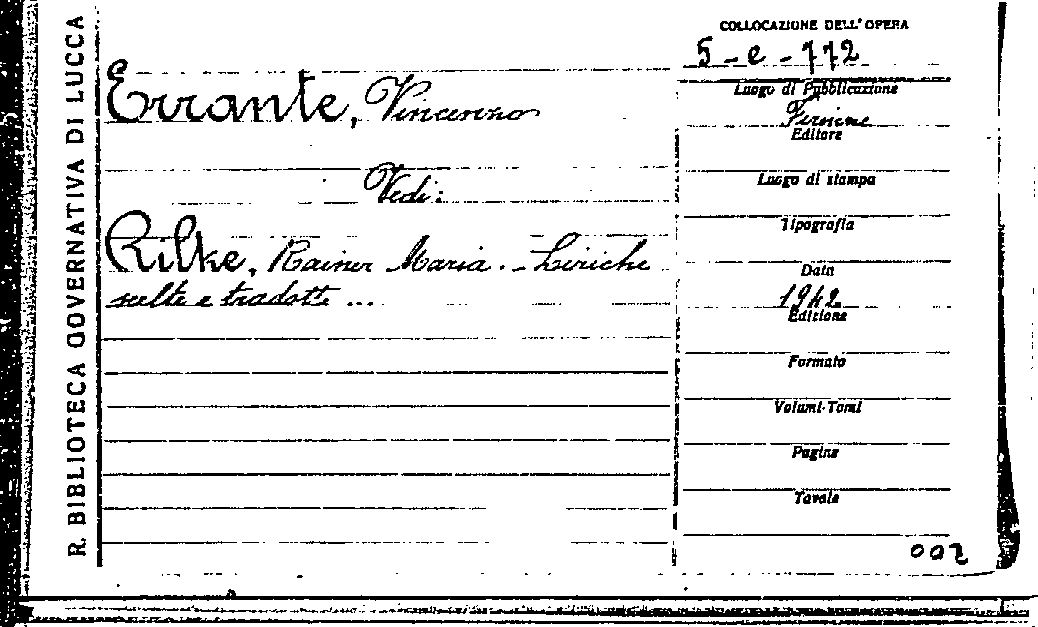 R. BIBLIOTECA GOVERNATIVA DI LUCCA
Errante, Vincenzo
Vedi:
Rilke, Rainer Maria. - Liriche
scelte e tradotte ...
COLLOCAZIONE DELL'OPERA
5 - e - 772
Luogo di Pubblicazione
Firenze
Editore
Luogo di stampa
Tipografia
Data
1942
Edizione
Formato
Volumi-Tomi
Pagine
Tavole
002